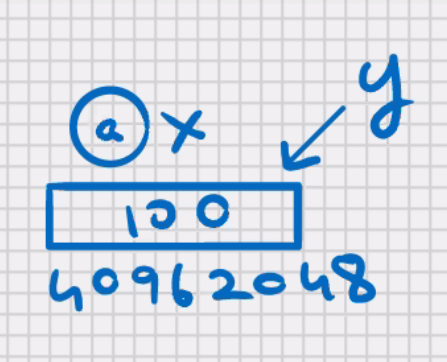 y
a x
100
40962048